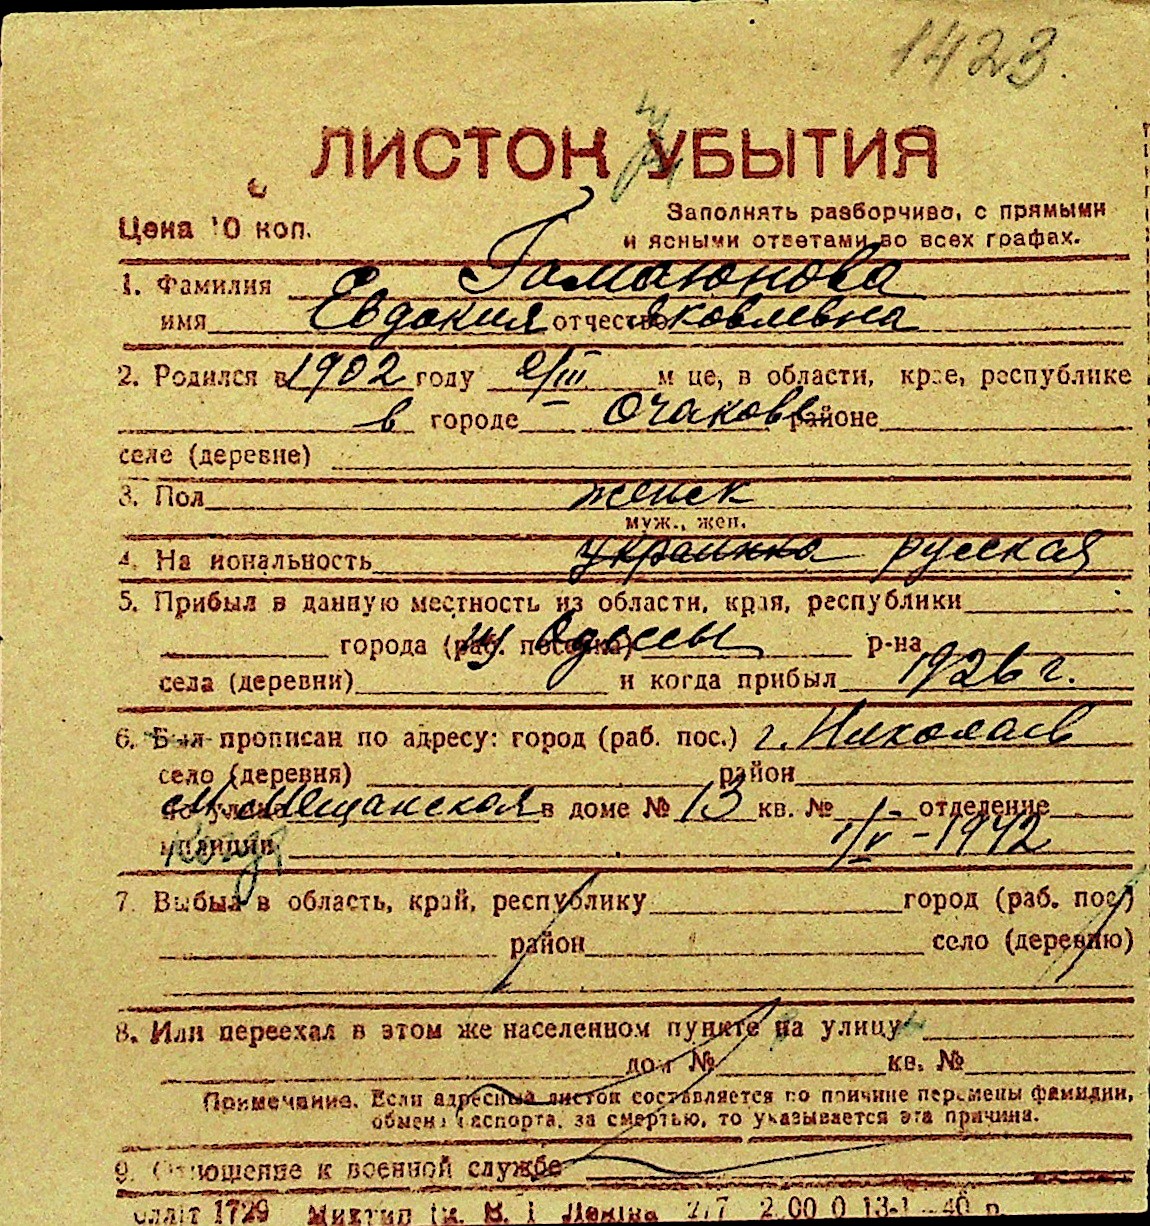 1423.
ЛИСТОК УБЫТИЯ
Цена 10 коп.
Заполнять разборчиво, с прямыми
и ясными ответами во всех графах.
1. Фамилия Гамаюнова
имя Евдокия отчество Яковлевна
2. Родился в 1902 году 2/III м це, в области, крае, республике
в городе Очакове районе
селе (деревне)
3. Пол женск
муж., жен.
4. На иональность украинка русская
5. Прибыл в данную местность из области, края, республики
города (раб. поселка) из Одессы р-на
села (деревни) и когда прибыл 1926 г.
6. Был прописан по адресу: город (раб. пос.) г. Николаев
село (деревня) район
по улице М. Мещанская в доме № 13 кв. № отделение
милиции Когда 1/V - 1942
7. Выбыл в область, край, республику город (раб. пос.)
район село (деревню)
8. Или переехал в этом же населенном пункте на улицу
дом № кв. №
Примечание. Если адресный листок составляется по причине перемены фамилии,
обмена паспорта, за смертью, то указывается эта причина.
9. Отношение к военной службе
1729 В. І Леніна